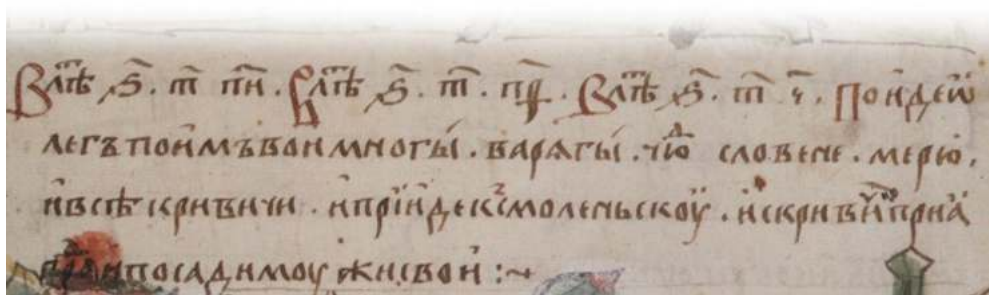 В лт҇ѣ ҂ѕ҃ . т҃ п҃и . В лт҇ѣ ҂ѕ҃ . т҃ . п҃ѳ . В лт҇ѣ ҂ѕ҃ . т҃ ч҃ . Поиде ѡ
легъ поимъ вои многы . варѧгы . чюⷣ словене . мерю .
и всѣ кривичи . и прїиде к смоленьскоу . и с кривичи прїа
градъ и посади моужи свои :~